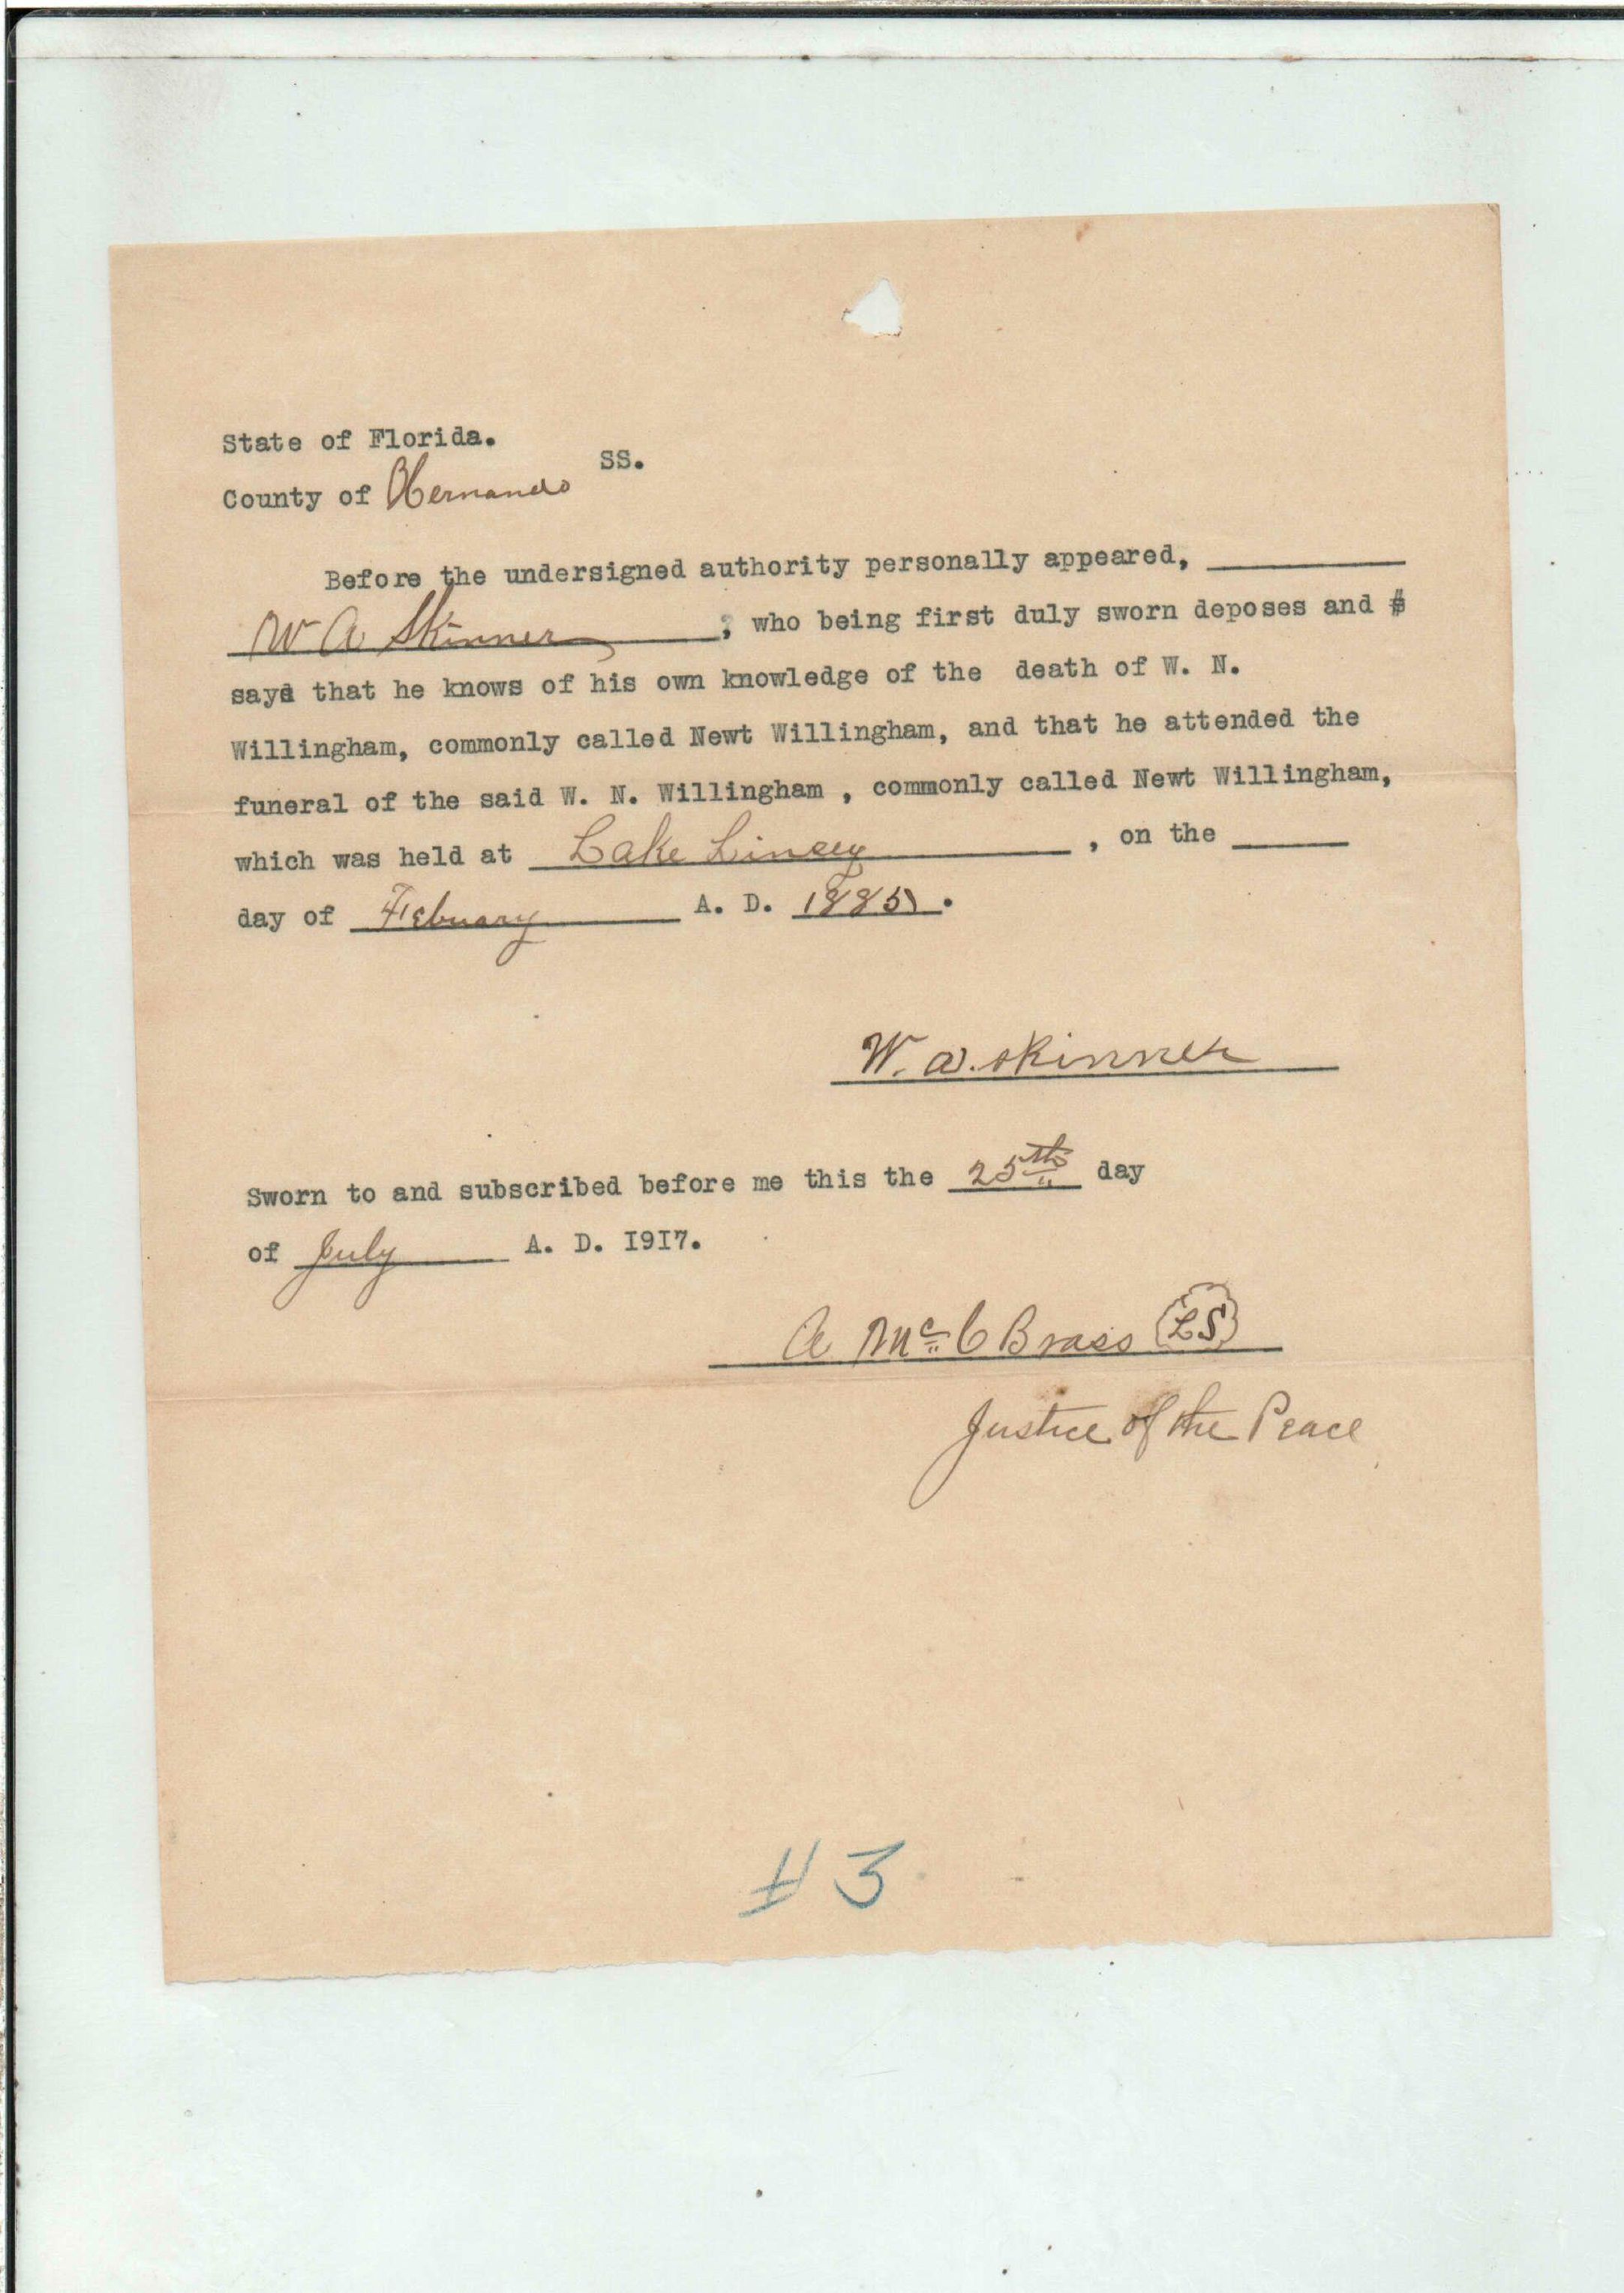 State of Florida.
SS.
County of Hernando
Before the undersigned authority personally appeared, ________
W A Skinner ____, who being first duly sworn deposes and s
says that he knows of his own knowledge of the death of W. N.
Willingham, commonly called Newt Willingham, and that he attended the
funeral of the said W. N. Willingham , commonly called Newt Willingham,
which was held at Lake Linsey , on the ______
day of Febuary A. D. 1885 .
W. A. Skinner
Sworn to and subscribed before me this the 25th day
of July A. D. I9I7.
A Mc C Brass (LS)
Justice of the Peace
#3